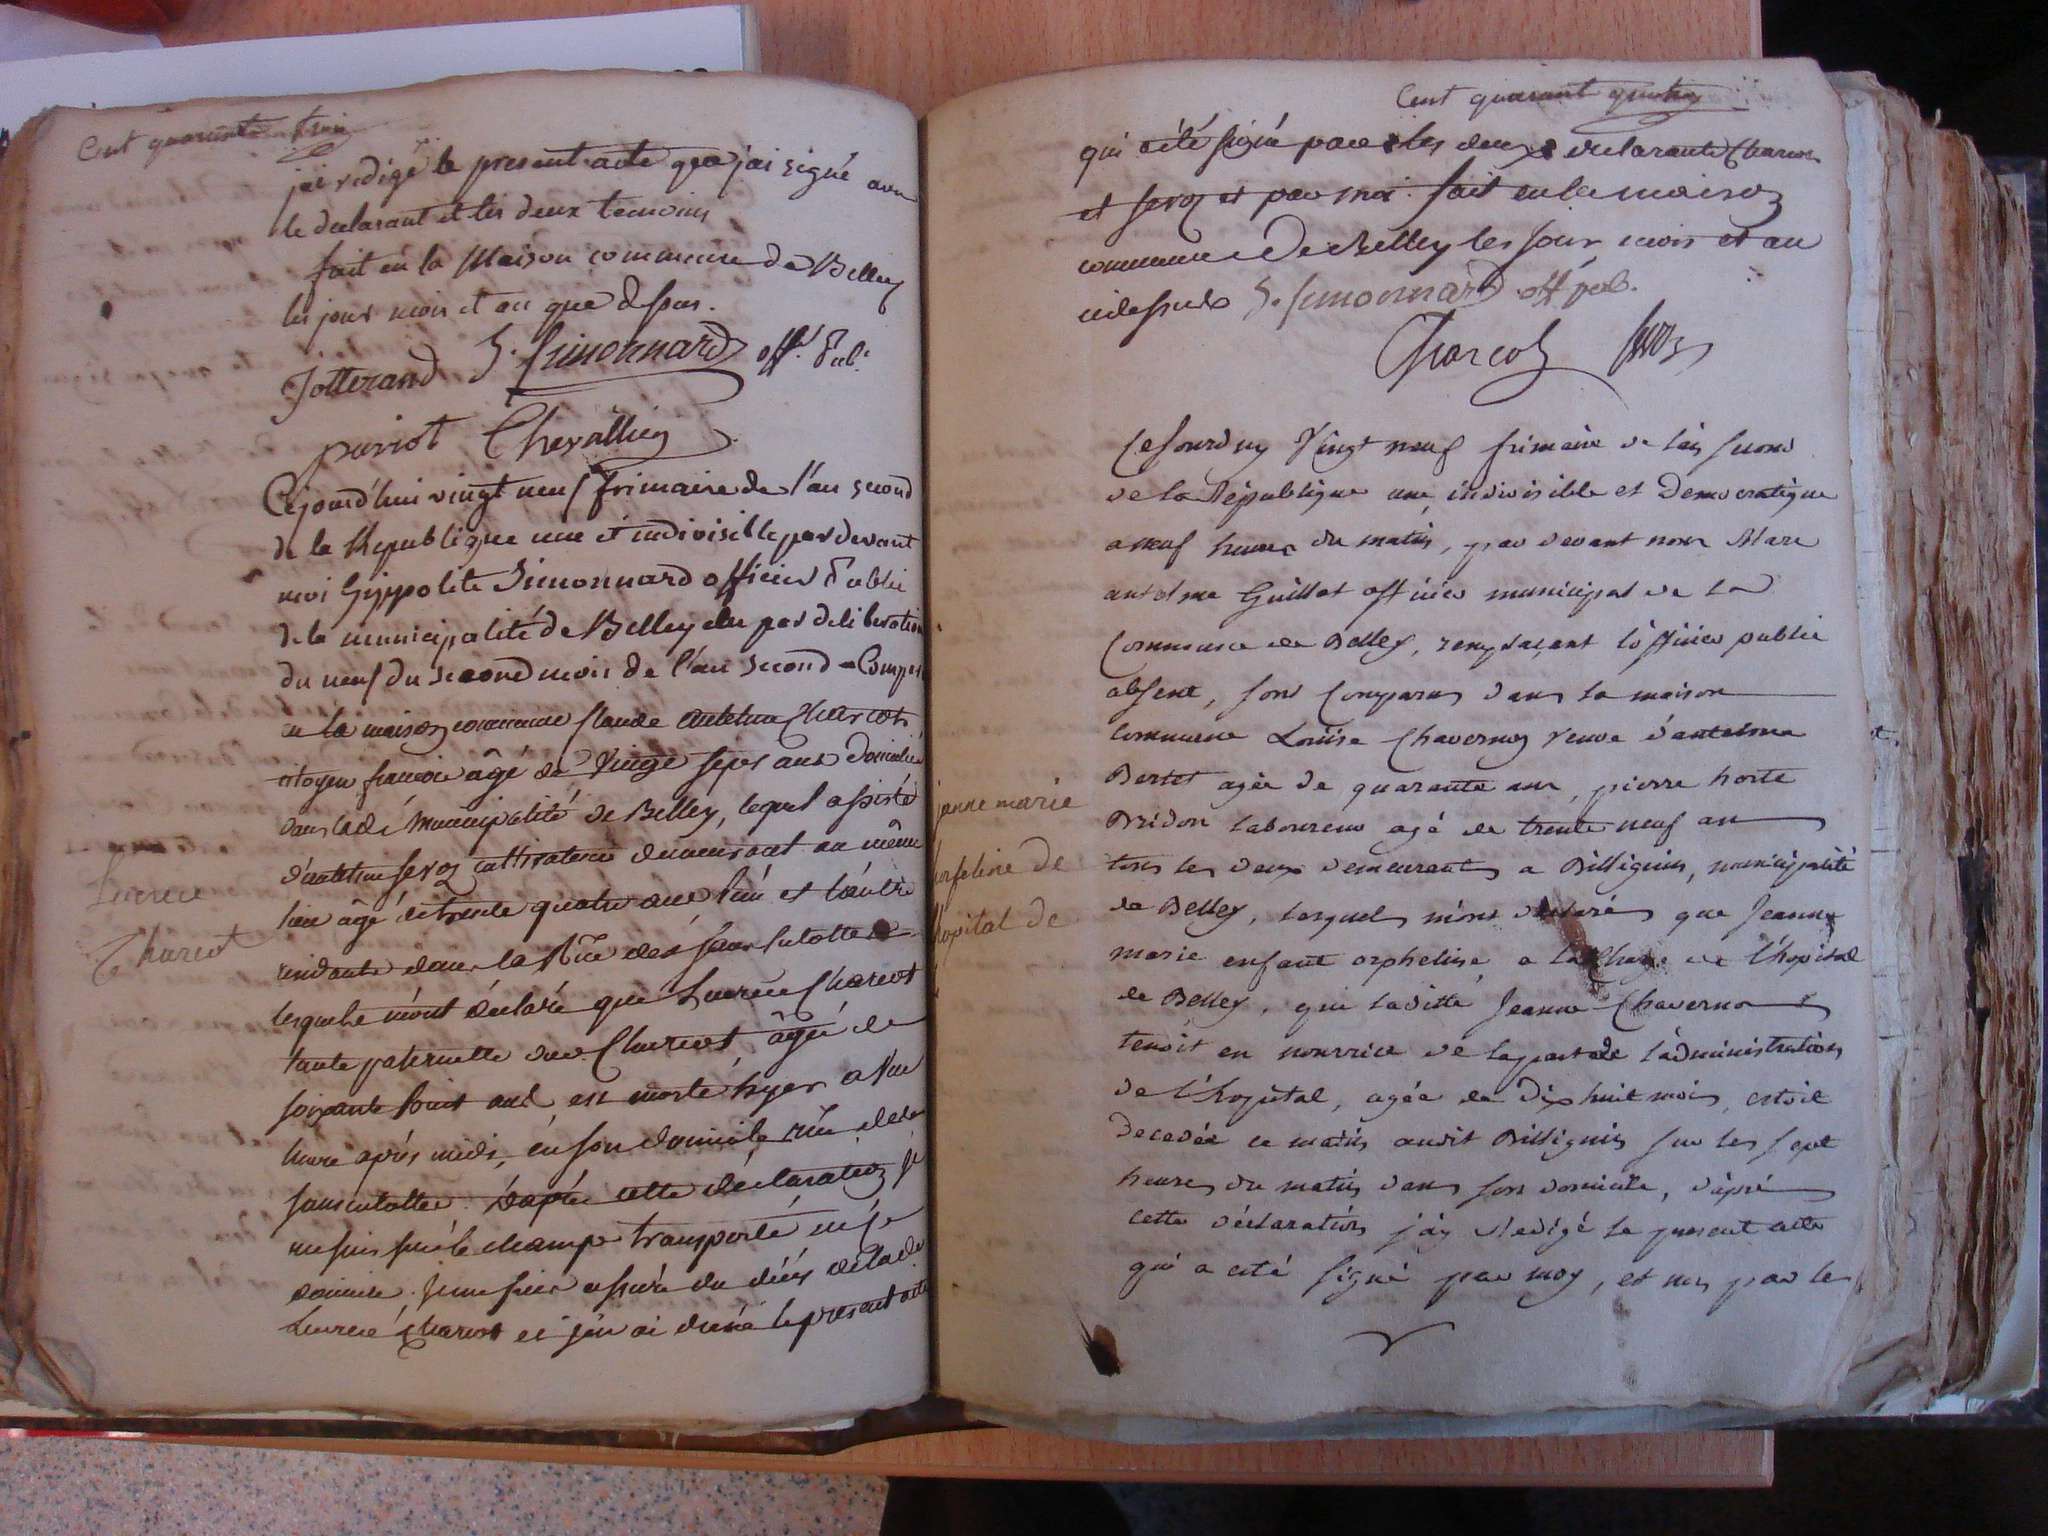 Cent quarante trois
jai redigé le present acte que jai signé avec
le declarant et les deux temoins
fait en la Maison commune de Belley
les jour mois et an que dessus.
Jotterand S. Simonnard off. Pub.
puriot Chevallier
Cejourd'hui vingt neuf frimaire de l'an second
de la Republique une et indivisible par devant
moi hyppolite Simonnard officier Public
de la municipalité de Belley elu par deliberation
du neuf du second mois de l'an second Comparu
en la maison commune Claude antelme Charcot
citoyen francois âgé de Vingt sept ans domicilié
dans la de municipalité de Belley, lequel assisté
d'antelme cultivateur demeurant au même
lieu âgé de trente quatre ans l'un et l'autre
residants dans la Rue des sans culottes
lesquels m'ont déclaré que Lucrece Charcot
tante paternelle du Charcot, âgée de
soixante huit ans est morte hyer a une
heure après midi, en son domicile rue des
sans culottes. D'après cette déclaration je
me suis sur le champ transporté au
domicile. Je me suis assuré du décès de lade
Lucrece Charcot et j'en ai dressé le present acte
Lucrece
Charcot
Cent quarant quatre
qui a été signé par les deux declarants Charcot
et et par moi. fait en la maison
commune de Belley les jour, mois et an
cidessus S. Simonnard off. pub.
Charcot
Cejourduy Vingt neuf frimaire de l'an second
de la République une, indivisible et Democratique
a neuf heures du matin, par devant nous Marc
antelme Guillot officier municipal de la
Commune de Belley, remplaçant l'officier public
absent, sont Comparus dans la maison
Commune Louise Chavernoz veuve d'antelme
Bertet agée de quarante ans, pierre horte
Bridon laboureur agé de trente neuf ans
tous les deux demeurants a Billignin, municipalité
de Belley, lesquels m'ont declarés que Jeanne
marie enfant orpheline, a la Charge de l'hopital
de Belley, que laditte Jeanne Chavernoz
tenoit en nourrice de la part de l'administration
de l'hopital, agée de Dix huit mois, estoit
decedée ce matin audit Billignin sur les sept
heures du matin dans son domicile, d'après
cette déclaration j'ay redigé le present acte
qui a eté signé par moy, et non par les
janne marie
orfeline de
hopital de